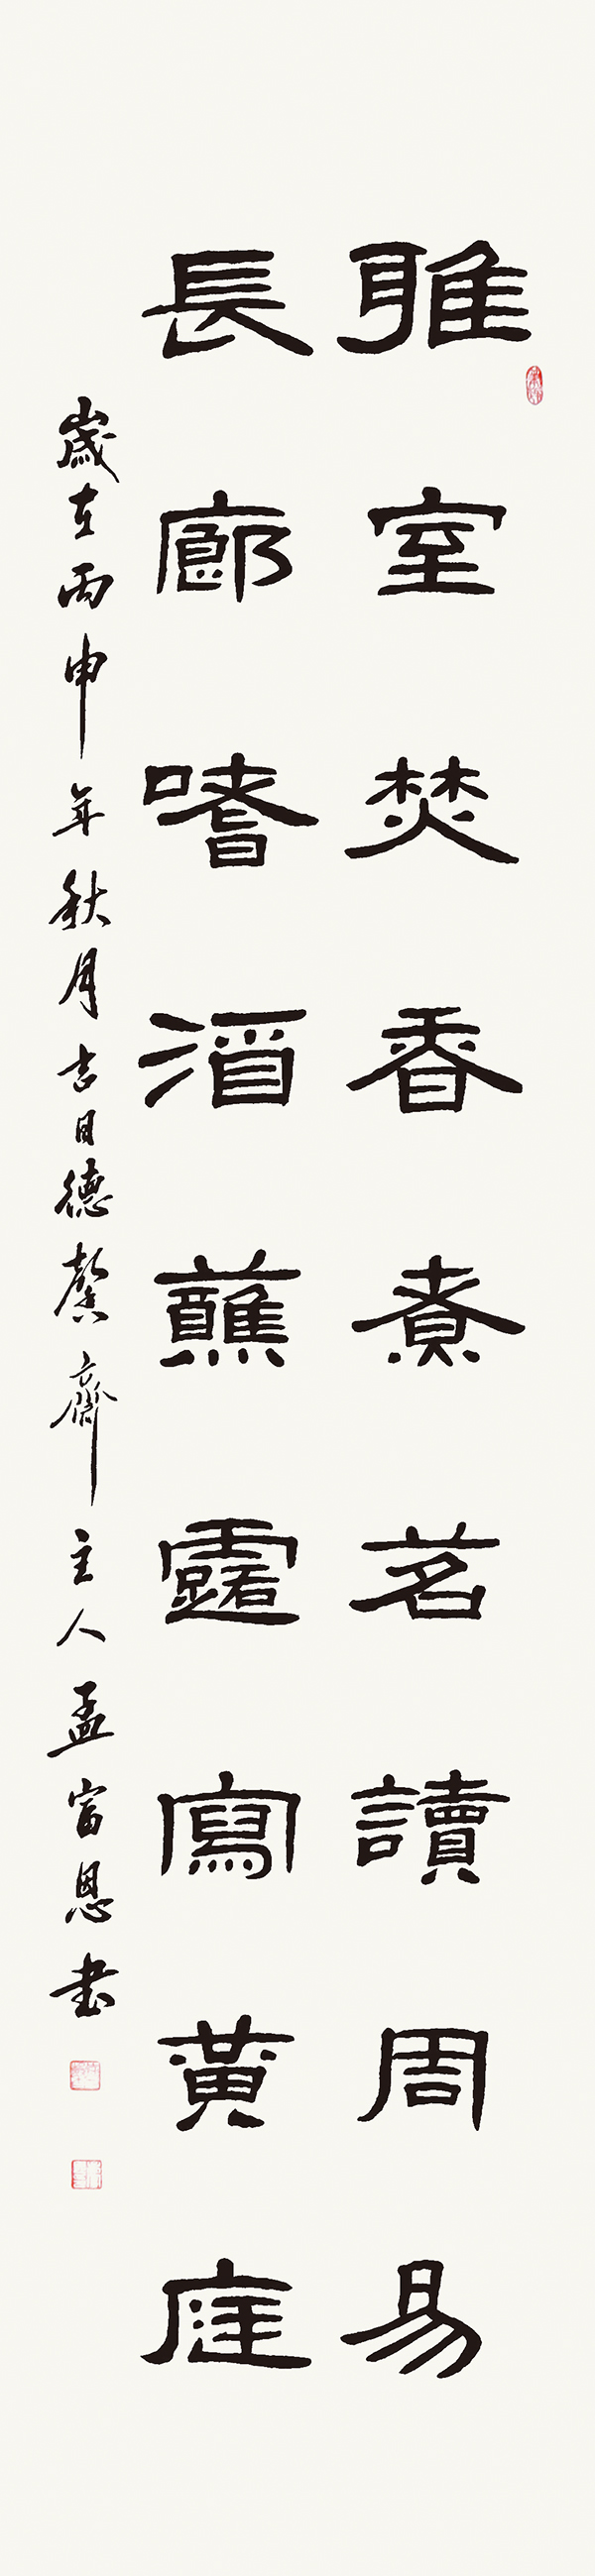 雅室焚香煮茗讀周易
長廊嗜酒蘸露寫黃庭
歲在丙申年秋月吉日德馨齋主人孟富恩书